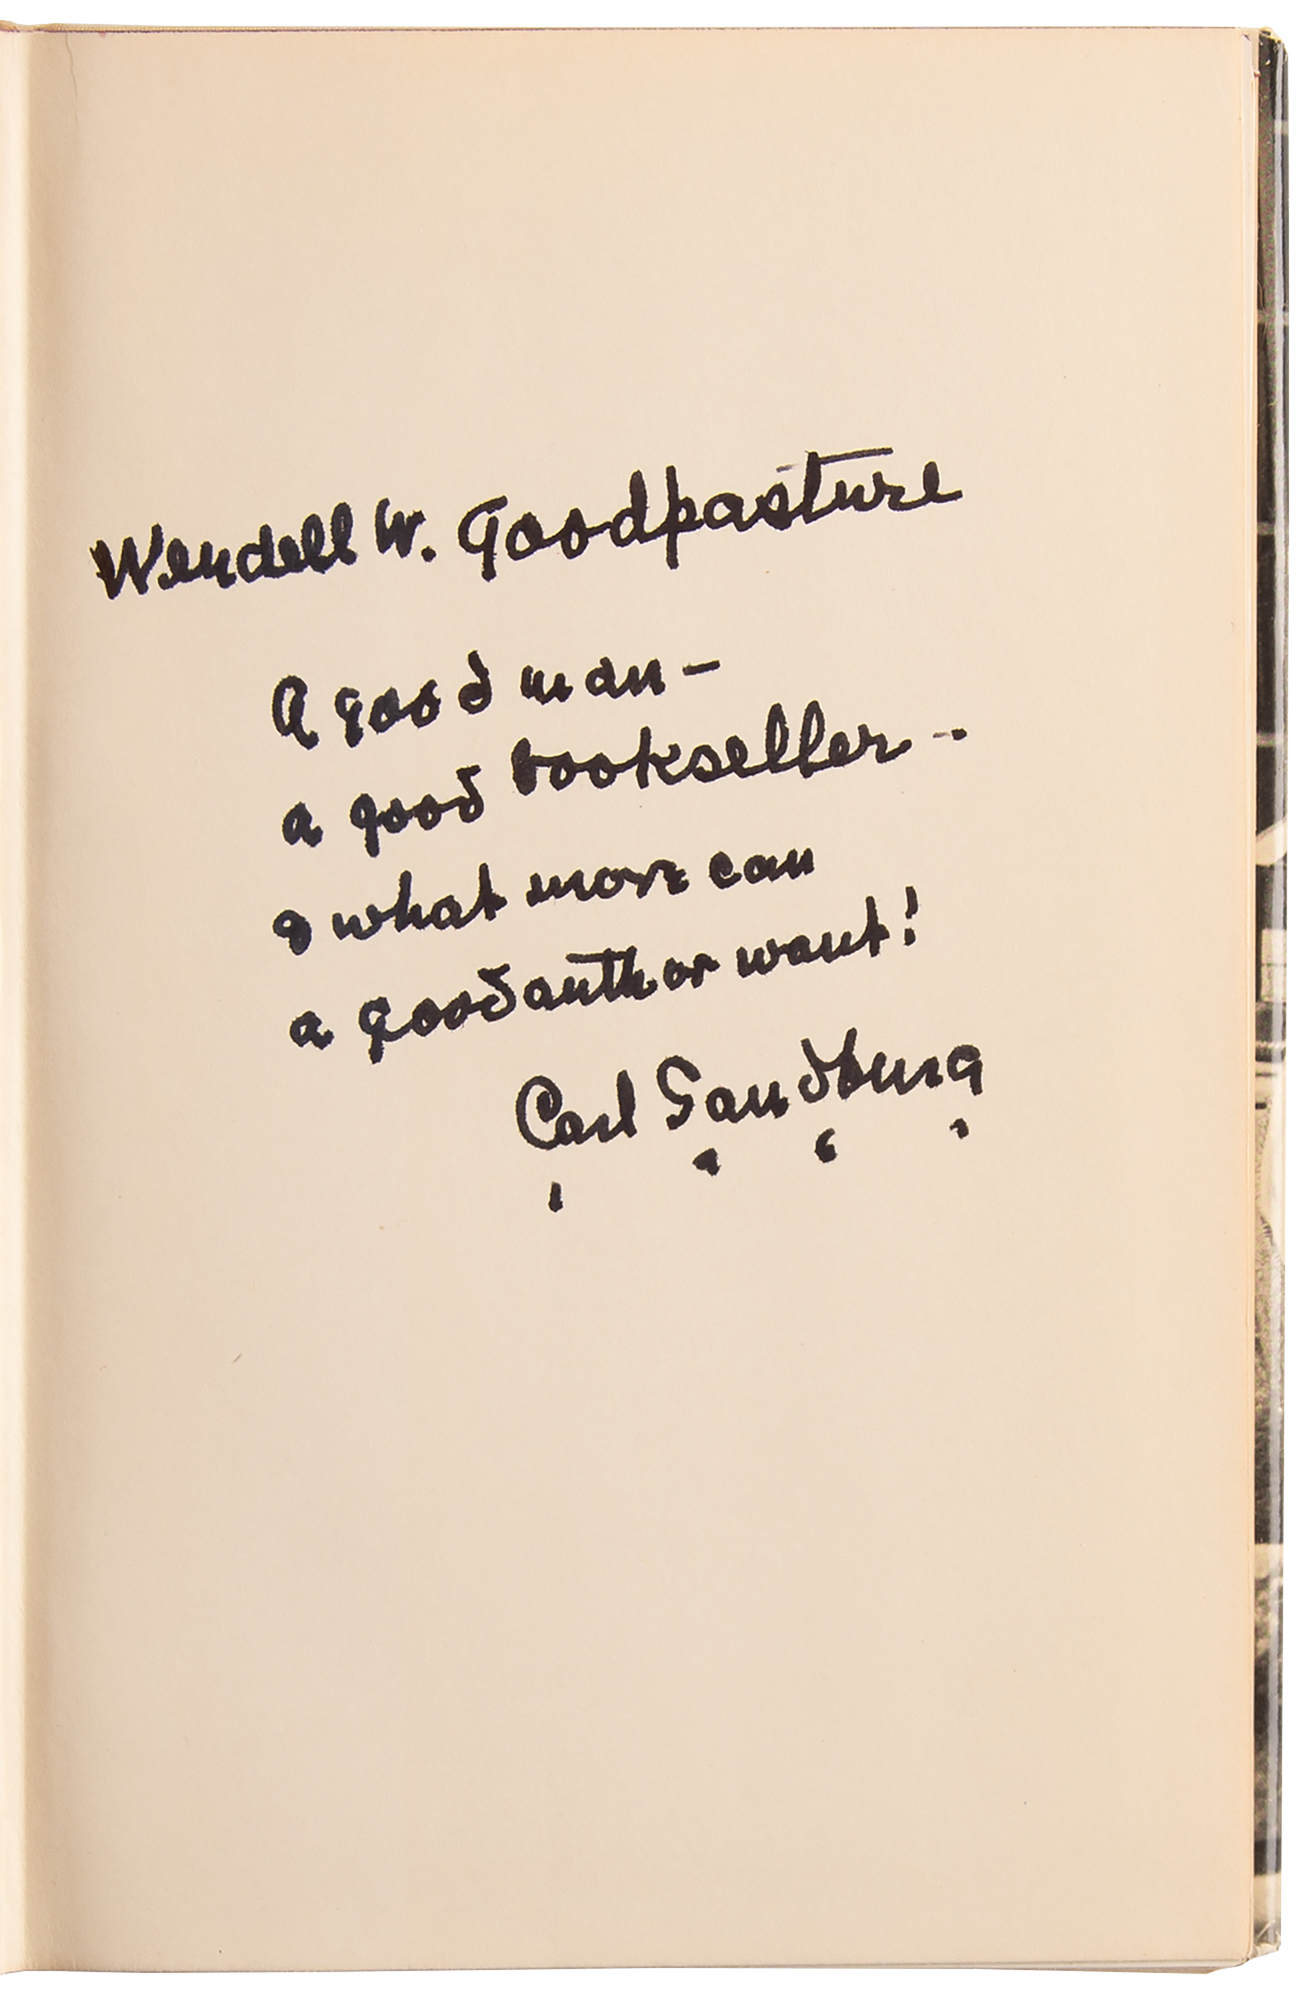 Wendell W. Goodpasture
A good man -
a good bookseller -
& what more can
a good author want!
Carl Sandburg